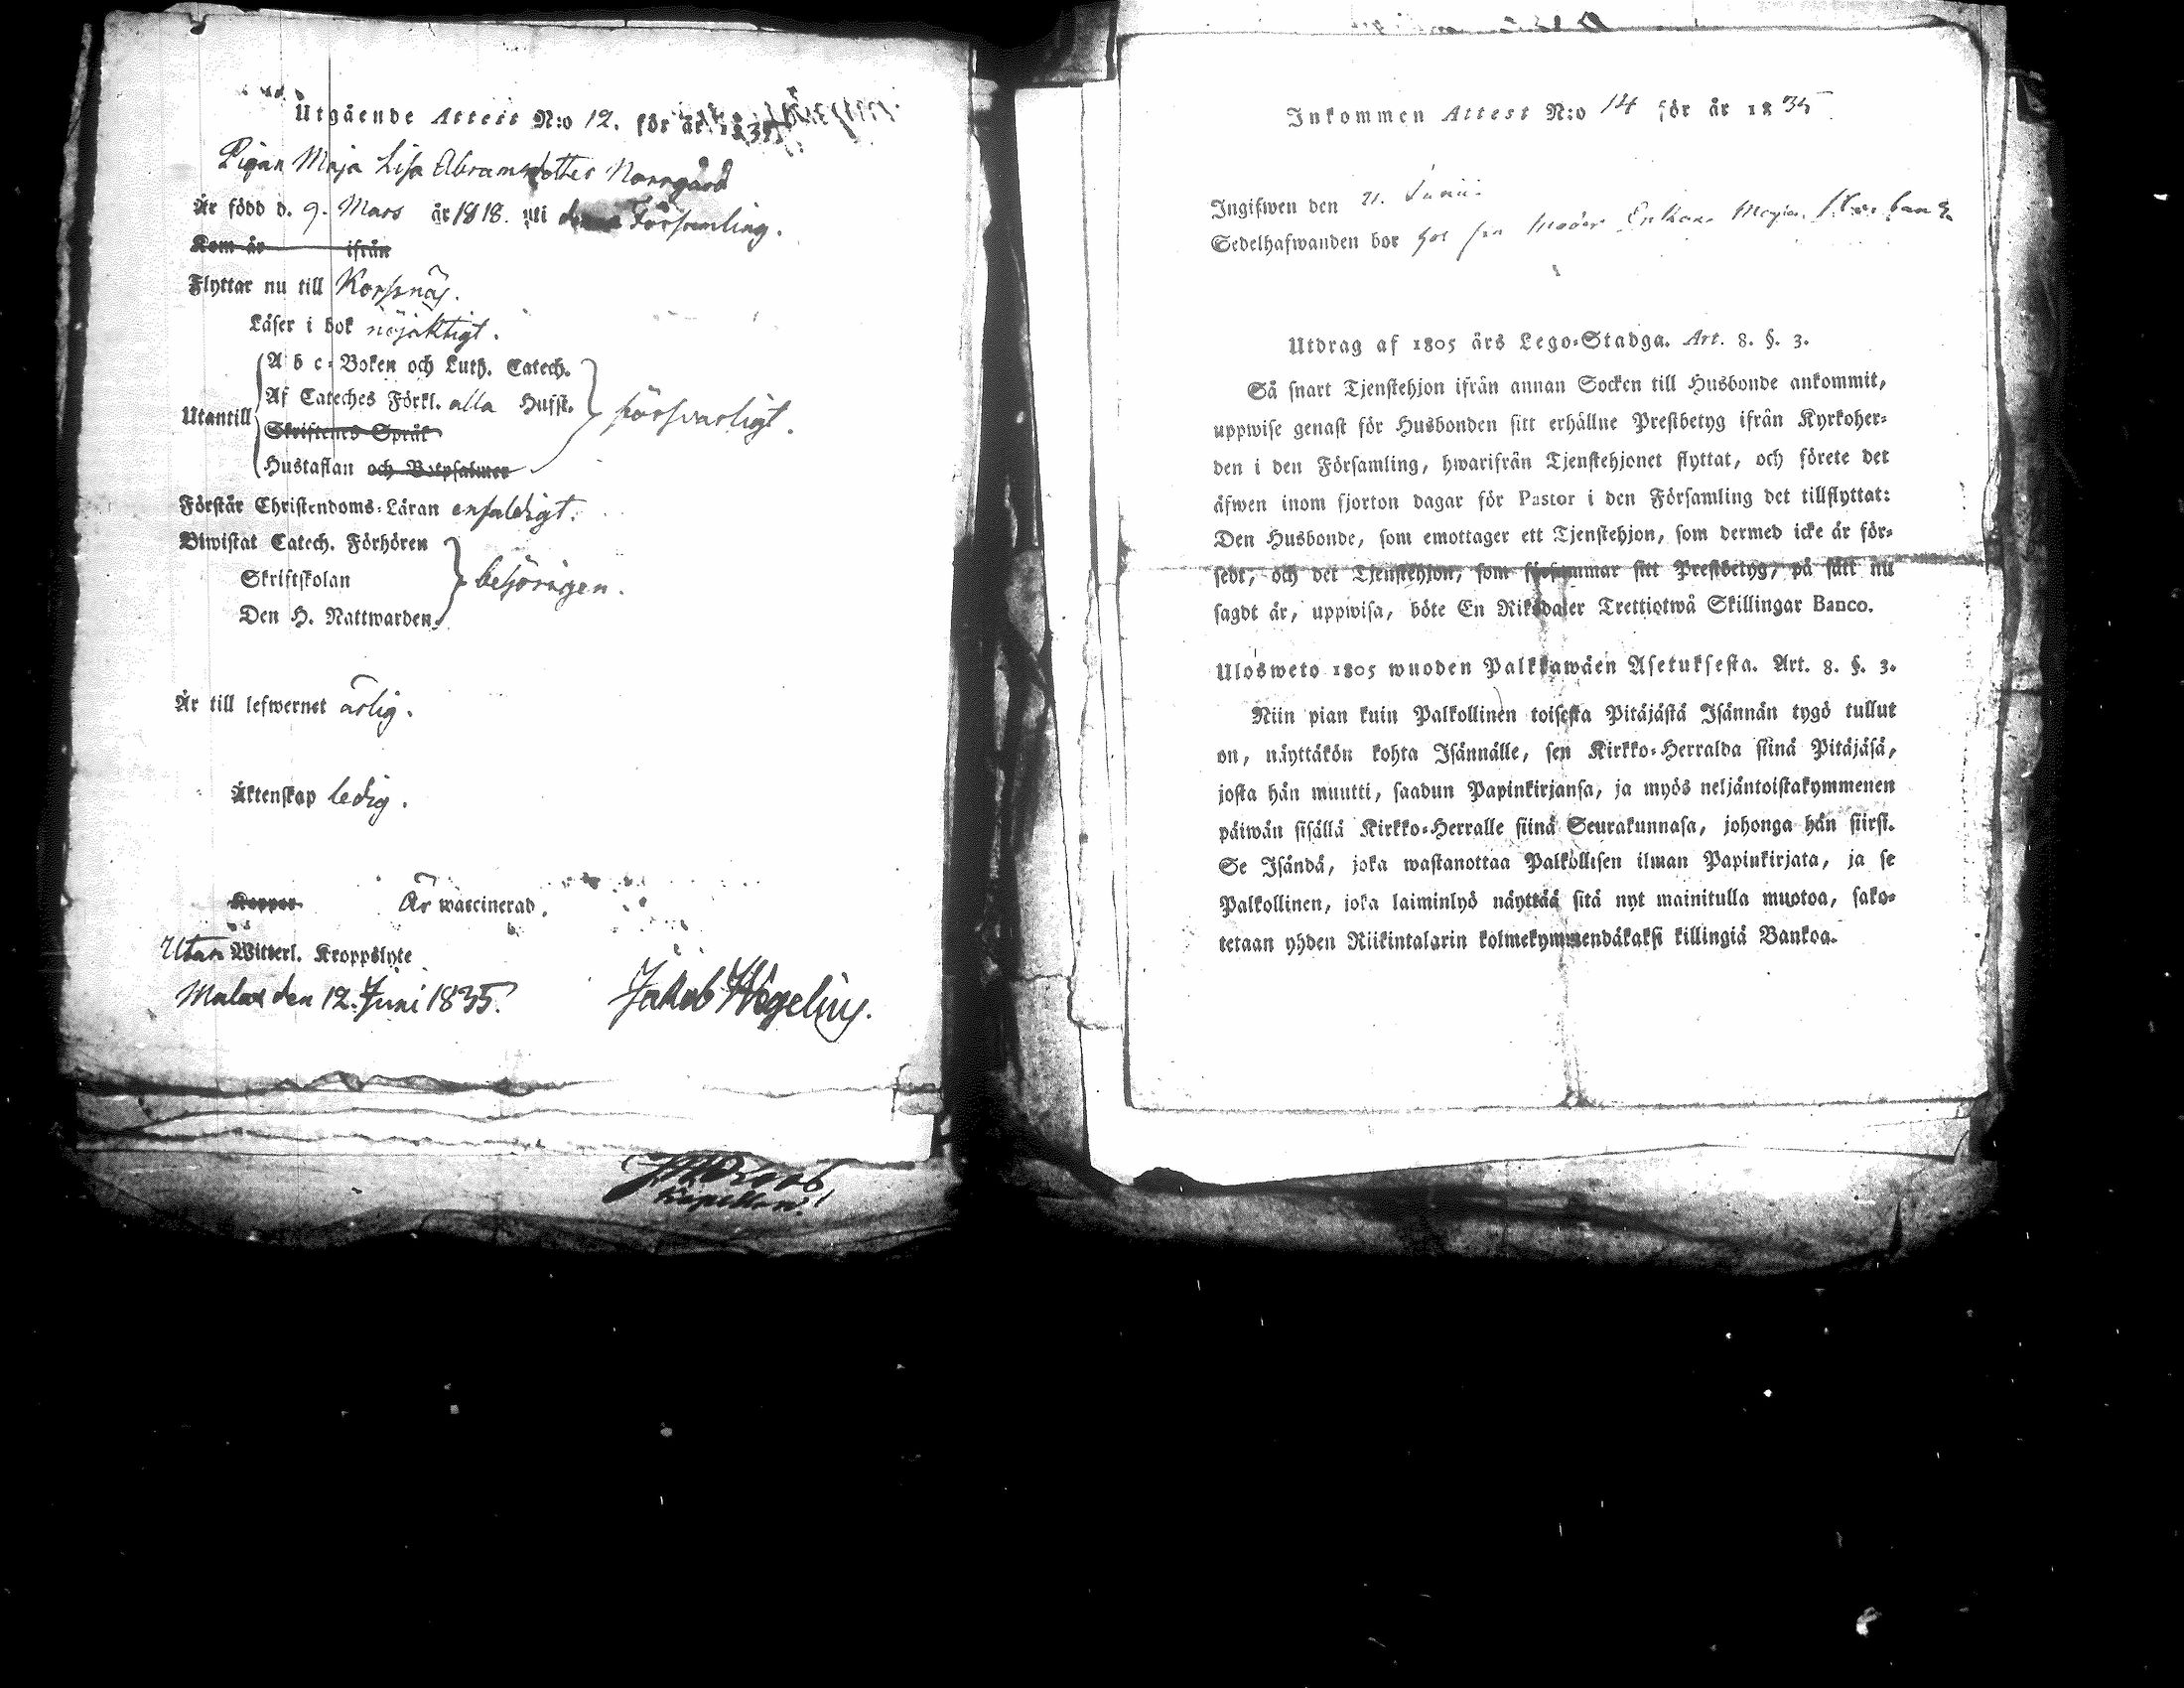 Utgående Attest N:o 12. för år 1835
Pigan Maja Lisa Abramsdotter Norrgård
Är född d. 9. Mars år 1818. uti denna Församling.
Kom år ifrån
Flyttar nu till Korsnäs.
Läser i bok nöjaktigt.
A b c-Boken och Luth. Catech.
Af Cateches Förkl. alla Husst.
Utantill försvarligt.
Skriftenes Språk
Hustaflan och Botpsalmer
Förstår Christendoms-Läran enfaldigt.
Biwistat Catech. Förhören
Skriftskolan behörigen.
Den H. Nattwarden
Är till lefwernet ärlig.
Äktenskap ledig.
Koppor Är waccinerad.
Utan Witterl. Kroppslyte
Malax den 12. Juni 1835.
Jakob Wegelius.
Kapellan
Inkommen Attest N:o 14 för år 1835
Ingifwen den 21. Junii.
Sedelhafwanden bor hos sin Moder Enkan Maja
Utdrag af 1805 års Lego-Stadga. Art. 8. §. 3.
Så snart Tjenstehjon ifrån annan Socken till Husbonde ankommit,
uppwise genast för Husbonden sitt erhållne Prestbetyg ifrån Kyrkoher-
den i den Församling, hwarifrån Tjenstehjonet flyttat, och förete det
äfwen inom fjorton dagar för Pastor i den Församling det tillflyttat:
Den Husbonde, som emottager ett Tjenstehjon, som dermed icke är för-
sedt, och det Tjenstehjon, som försummar sitt Prestbetyg, på sätt nu
sagdt är, uppwisa, böte En Riksdaler Trettiotwå Skillingar Banco.
Ulosweto 1805 wuoden Palkkawäen Asetuksesta. Art. 8. §. 3.
Niin pian kuin Palkollinen toisesta Pitäjästä Isännän tygö tullut
on, näyttäkön kohta Isännälle, sen Kirkko-Herralda siinä Pitäjäsä,
josta hän muutti, saadun Papinkirjansa, ja myös neljäntoistakymmenen
päiwän sisällä Kirkko-Herralle siinä Seurakunnasa, johonga hän siirsi.
Se Isändä, joka wastanottaa Palkollisen ilman Papinkirjata, ja se
Palkollinen, joka laiminlyö näyttää sitä nyt mainitulla muotoa, sako-
tetaan yhden Riikintalarin kolmekymmendäkaksi killingiä Bankoa.